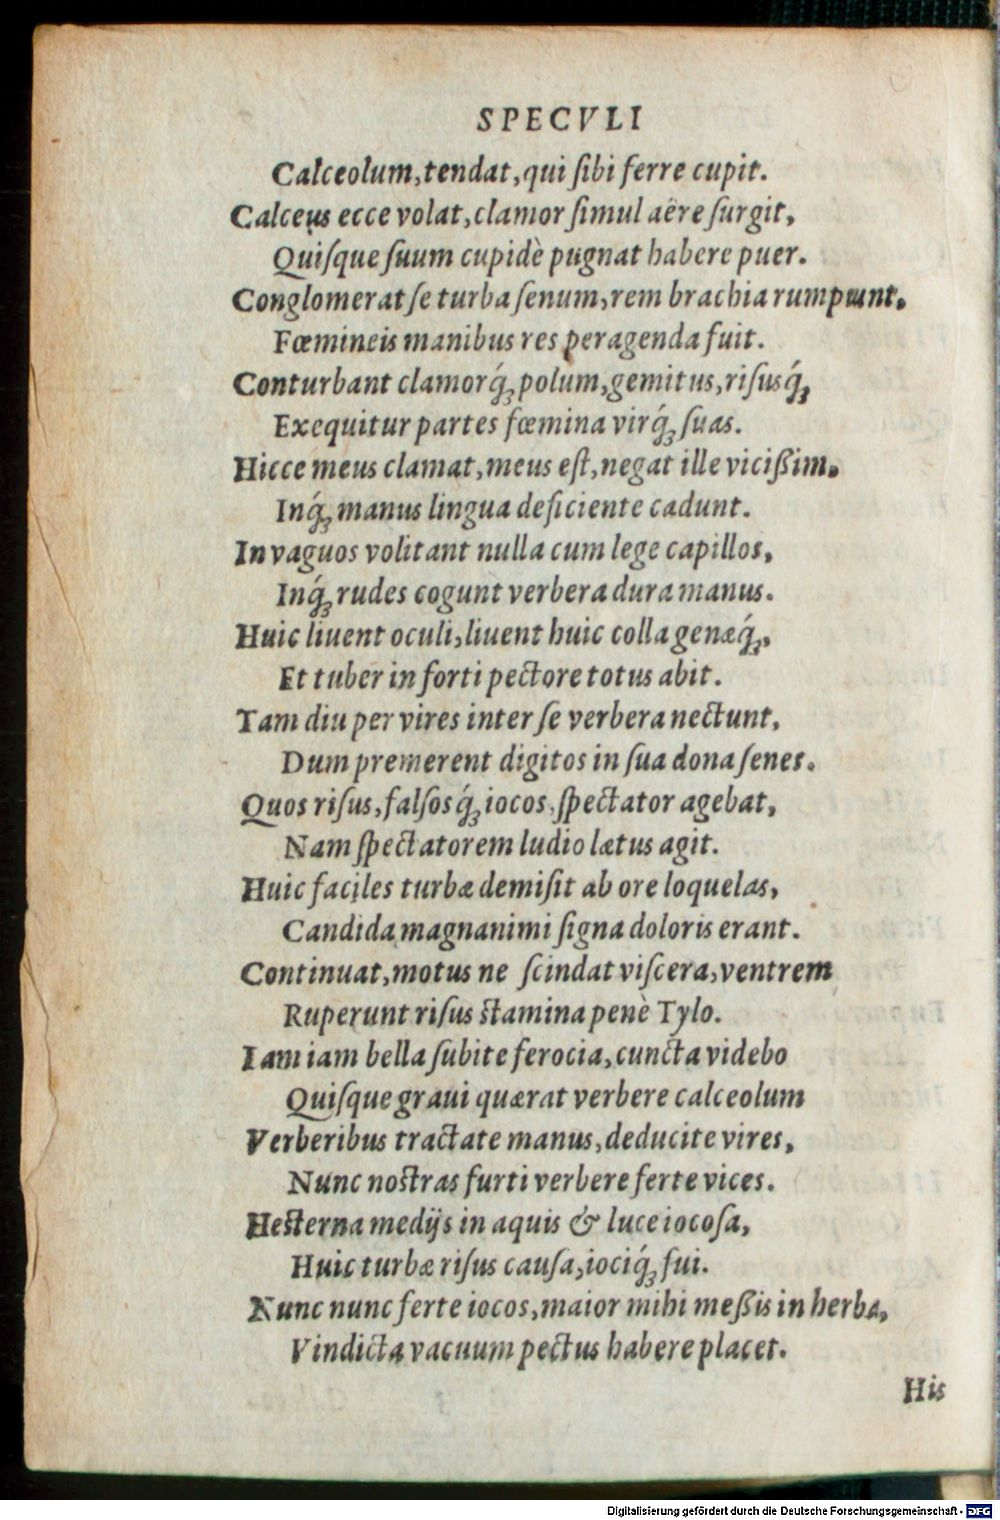 SPECVLI
Calceolum, tendat, qui ſibi ferre cupit.
Calceus ecce volat, clamor ſimul aëre ſurgit,
Quiſque ſuum cupidè pugnat habere puer.
Conglomerat ſe turba ſenum, rem brachia rumpunt,
Fœmineis manibus res peragenda fuit.
Conturbant clamorq́ꝫ polum, gemitus, riſusq́ꝫ,
Exequitur partes fœmina virq́ꝫ ſuas.
Hicce meus clamat, meus eſt, negat ille vicißim,
Inq́ꝫ manus lingua deficiente cadunt.
In vaguos volitant nulla cum lege capillos,
Inq́ꝫ rudes cogunt verbera dura manus.
Huic liuent oculi, liuent huic colla genæq́ꝫ,
Et tuber in forti pectore totus abit.
Tam diu per vires inter ſe verbera nectunt,
Dum premerent digitos in ſua dona ſenes.
Quos riſus, falſosq́ꝫ iocos, ſpectator agebat,
Nam ſpectatorem ludio lætus agit.
Huic faciles turbæ demiſit ab ore loquelas,
Candida magnanimi ſigna doloris erant.
Continuat, motus ne ſcindat viſcera, ventrem
Ruperunt riſus ſtamina penè Tylo.
Iam iam bella ſubite ferocia, cuncta videbo
Quiſque graui quærat verbere calceolum
Verberibus tractate manus, deducite vires,
Nunc noſtras furti verbere ferte vices.
Heſterna medijs in aquis & luce iocoſa,
Huic turbæ riſus cauſa, iociq́ꝫ fui.
Nunc nunc ferte iocos, maior mihi meßis in herba,
Vindicta vacuum pectus habere placet.
His
Digitalisierung gefördert durch die Deutsche Forschungsgemeinschaft - DFG